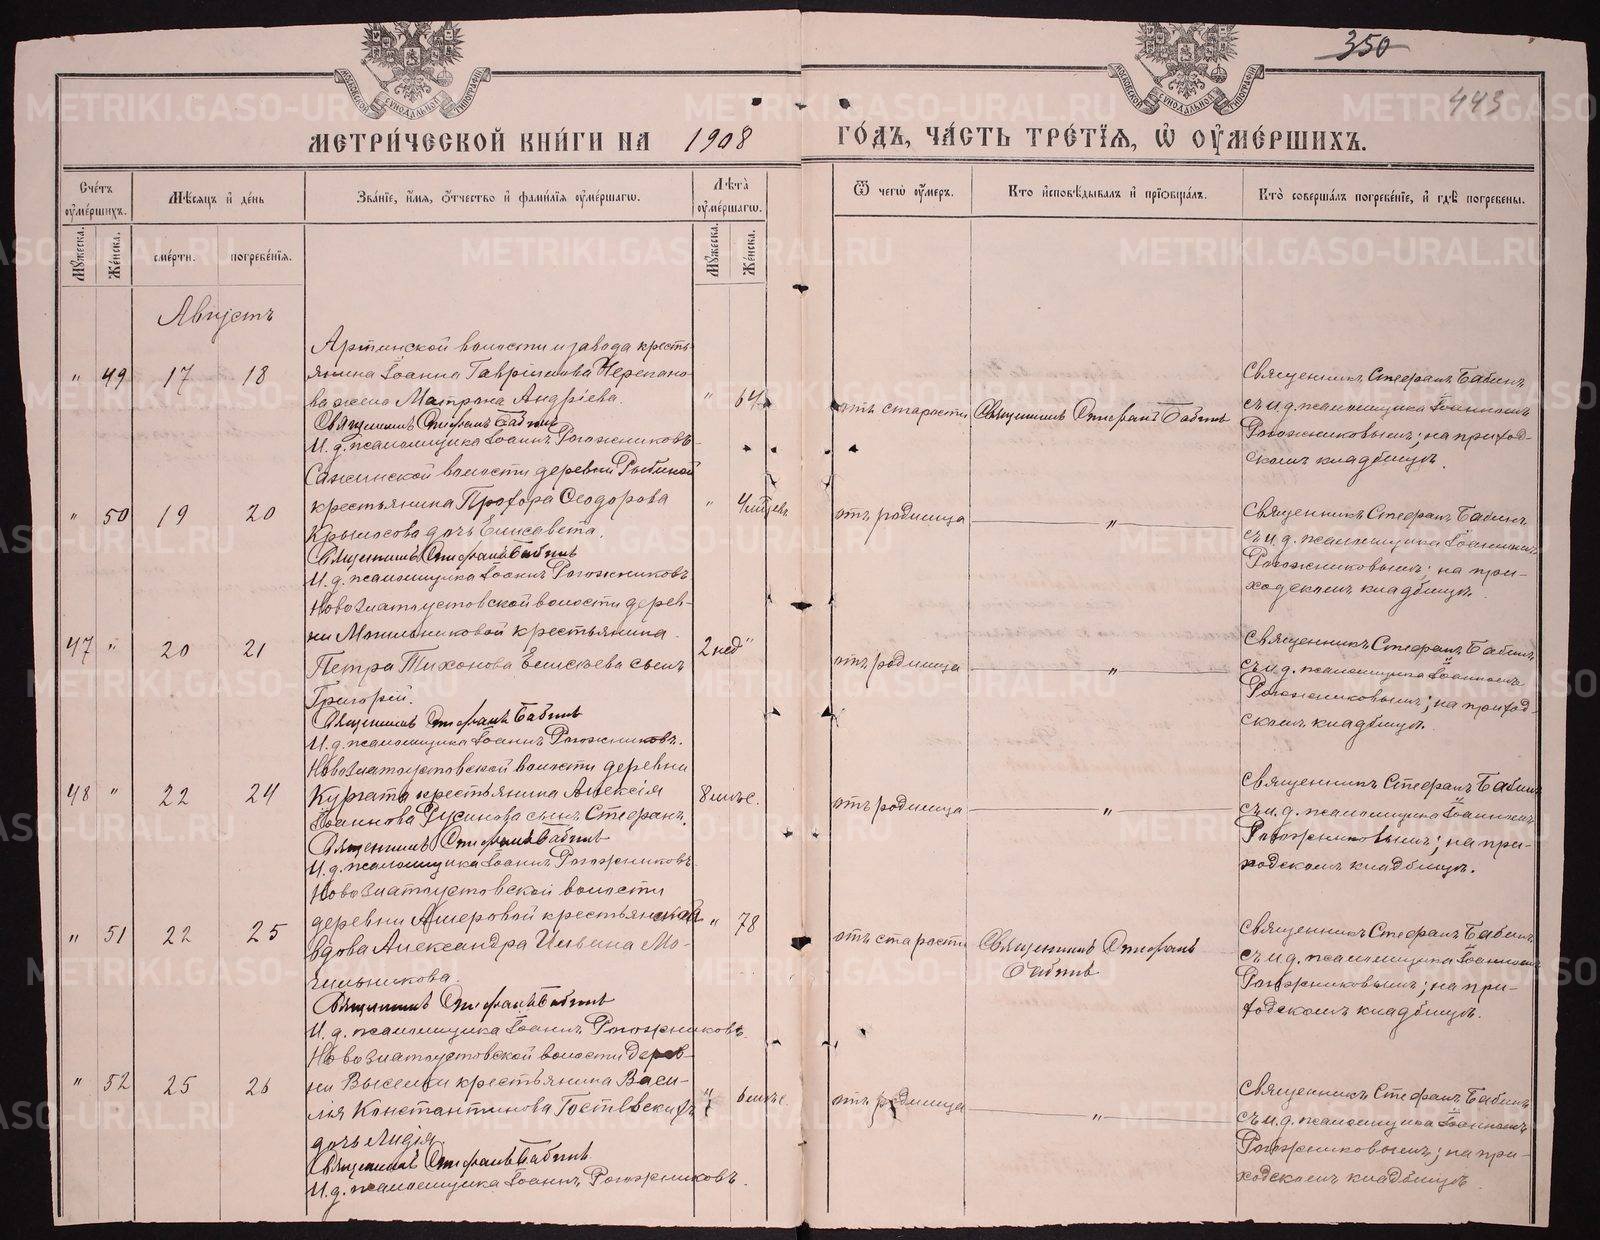 350
443
МЕТРИ́ЧЕСКОЙ КНИ́ГИ НА 1908 ГО́ДЪ, ЧА́СТЬ ТРЕ́ТЇѦ, Ѽ ОУ҆МЕ́РШИХЪ.
Сче́тъ оу҆ме́ршихъ.
Мѣ́сѧцъ и҆ де́нь
Зва́нїе, и҆́мѧ, ѻ҆́тчество и҆ фами́лїѧ оу҆ме́ршагѡ.
Лѣ́та оу҆ме́ршагѡ.
Ѿ чегѡ̀ оу҆́меръ.
Кто̀ и҆сповѣ́дывалъ и҆ прїѡбща́лъ.
Кто̀ соверша́лъ погребе́нїе, и҆ гдѣ̀ погребены.
Мꙋ́жеска.
Же́нска.
сме́рти.
погребе́нїѧ.
Мꙋ́жеска.
Же́нска.
Августъ
" 49 17 18
Артинской волости и завода кресть-
янина Іоанна Гаврилова Черепано-
ва жена Матрона Андріева.
Священникъ Стефанъ Бабинъ
И. д. псаломщика Іоаннъ Рогожниковъ
" 64
отъ старости
Священникъ Стефанъ Бабинъ
Священникъ Стефанъ Бабинъ
съ и. д. псаломщика Іоанномъ
Рогожниковымъ; на приход-
скомъ кладбищѣ.
" 50 19 20
Сажинской волости деревни
крестьянина Прохора Ѳеодорова
Крылосова дочь Елисавета.
Священникъ Стефанъ Бабинъ
И. д. псаломщика Іоаннъ Рогожниковъ
"
отъ родимца
"
Священникъ Стефанъ Бабинъ
съ и. д. псаломщика Іоанномъ
Рогожниковымъ; на при-
ходскомъ кладбищѣ.
47 " 20 21
Новозлатоустовской волости дерев-
ни Могильниковой крестьянина
Петра Тихонова сынъ
Григорій.
Священникъ Стефанъ Бабинъ
И. д. псаломщика Іоаннъ Рогожниковъ.
2 нед "
отъ родимца
"
Священникъ Стефанъ Бабинъ
съ и. д. псаломщика Іоанномъ
Рогожниковымъ; на приход-
скомъ кладбищѣ.
48 " 22 24
Новозлатоустовской волости деревни
крестьянина Алексія
Іоаннова Русинова сынъ Стефанъ.
Священникъ Стефанъ Бабинъ
И. д. псаломщика Іоаннъ Рогожниковъ
8 мѣс.
отъ родимца
"
Священникъ Стефанъ Бабинъ
съ и. д. псаломщика Іоанномъ
Рогожниковымъ; на при-
ходскомъ кладбищѣ.
" 51 22 25
Новозлатоустовской волости
деревни крестьянская
вдова Александра Ильина Мо-
гильникова.
Священникъ Стефанъ Бабинъ
И. д. псаломщика Іоаннъ Рогожниковъ.
" 78
отъ старости
Священникъ Стефанъ
Бабинъ
Священникъ Стефанъ Бабинъ
съ и. д. псаломщика Іоанномъ
Рогожниковымъ; на при-
ходскомъ кладбищѣ.
" 52 25 26
Новозлатоустовской волости дерев-
ни Выселки крестьянина Васи-
лія Константинова
дочь Лидія.
Священникъ Стефанъ Бабинъ.
И. д. псаломщика Іоаннъ Рогожниковъ.
" 6 мѣс.
отъ родимца
"
Священникъ Стефанъ Бабинъ
съ и. д. псаломщика Іоанномъ
Рогожниковымъ; на при-
ходскомъ кладбищѣ.
METRIKI.GASO-URAL.RU